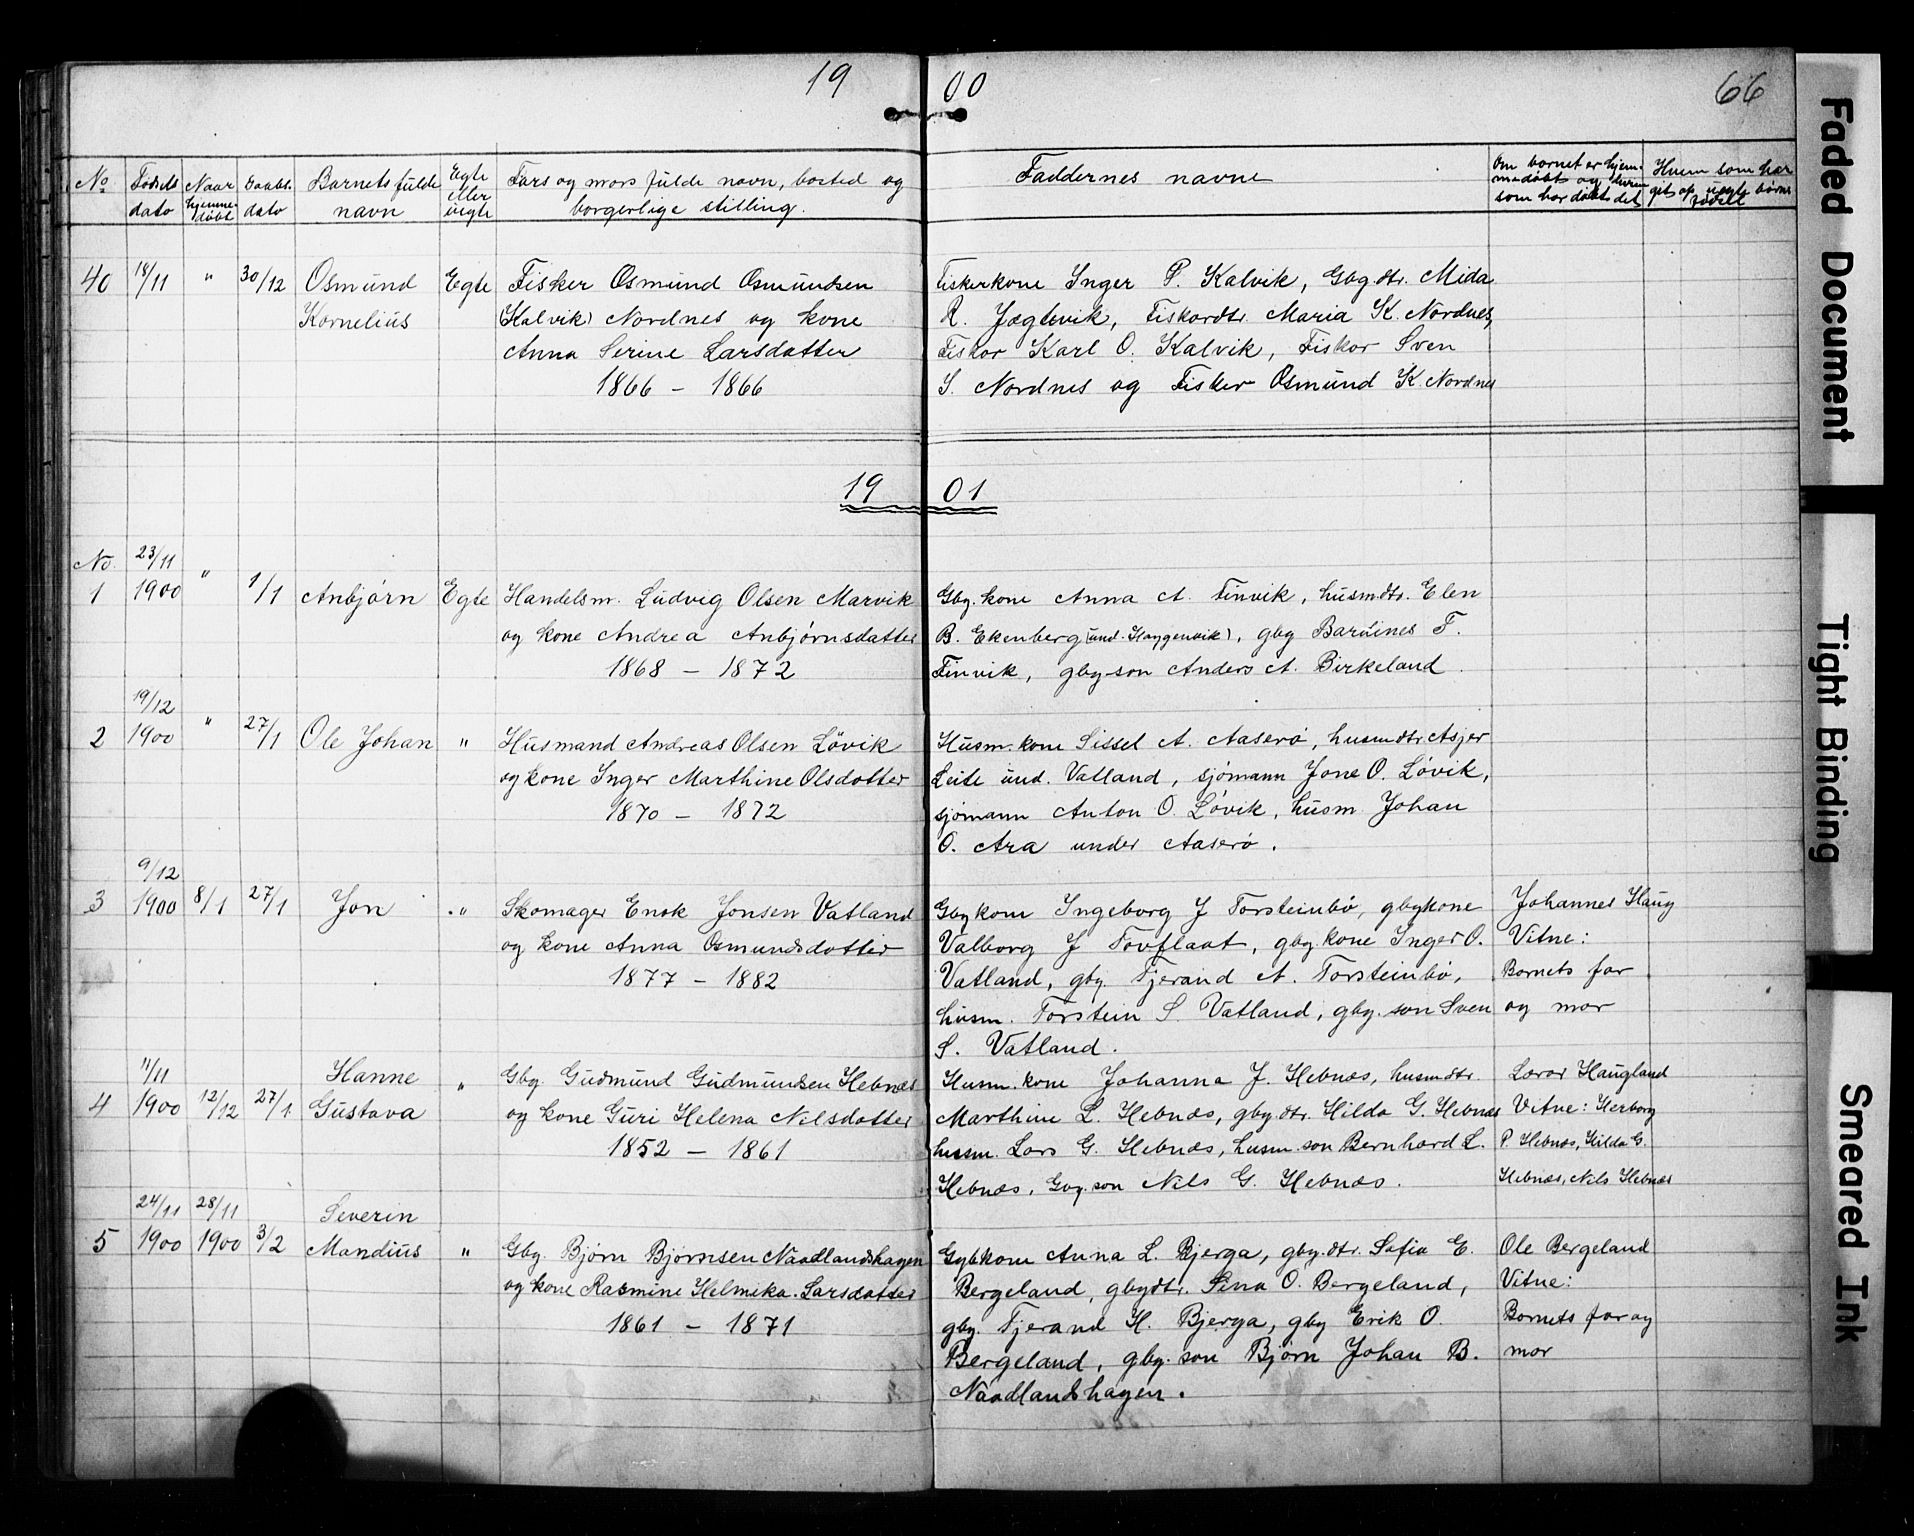 19 00
66
No
Fødsels dato
Naar hjemmedøbt
Daabs dato
Barnets fulde navn
Egte eller uegte
Fars og mors fulde navn, bosted og borgerlige stilling.
Faddernes navne
Om barnet er hjemmedøbt og hvem som har døbt det
Hvem som har
40 18/11 " 30/12 Osmund Kornelius Egte
Fisker Osmund Osmundsen
(Kalvik) Nordnes og kone
Anna Serine Larsdatter
1866 – 1866
Fiskerkone Inger P. Kalvik, Gbg.dtr. Mida
R. Jægtevik, Fiskerdtr. Maria K. Nordnes,
Fisker Karl O. Kalvik, Fisker Sven
S. Nordnes og Fisker Osmund K. Nordnes
19 01
No. 1 23/11 1900 " 1/1 Anbjørn Egte
Handelsm. Ludvig Olsen Marvik
og kone Andrea Anbjørnsdatter
1868 – 1872
Gbg. kone Anna A. Finvik, husm.dtr. Elen
B. Ekenberg (und. Høggenvik), gbg Bardines F.
Finvik, gbg.søn Anders A. Birkeland.
2 19/12 1900 " 27/1 Ole Johan "
Husmand Andreas Olsen Løvik
og kone Inger Marthine Olsdatter
1870 – 1872
Husm. kone Sissel A. Aaserø, husmdtr. Asjer
Leite und. Vatland, sjømann Jone O. Løvik,
sjømann Anton O. Løvik, husm. Johan
O. Ara under Aaserø.
3 9/12 1900 8/1 27/1 Jon "
Skomager Enok Jonsen Vatland
og kone Anna Osmundsdatter
1877 – 1882
Gbgkone Ingeborg J Torsteinbø, gbgkone
Valborg J Tovflaat, gbg. kone Inger O.
Vatland, gbg. Tjerand A. Torsteinbø,
husm. Torstein S. Vatland, gbg. søn Sven
S. Vatland.
Johannes Haug
Vitne:
Barnets far
og mor
4 11/11 1900 12/12 27/1 Hanne Gustava "
Gbg. Gudmund Gudmundsen Hebnes
og kone Guri Helena Nilsdatter
1852 – 1861
Husm. kone Johanna J. Hebnæs, husmdtr.
Marthine L. Hebnæs, gbg.dtr. Hilda G. Hebnæs
husm. Lars G. Hebnæs, husm. søn Bernhard L.
Hebnæs, Gbg. søn Nils G. Hebnæs.
Lærer Haugland
Vitne: Herborg
P. Hebnæs, Hilda G.
Hebnæs, Nils Hebnæs
5 24/11 1900 28/11 1900 3/2 Severin Mandius "
Gbg. Bjørn Bjørnsen Naadlandshagen
og kone Rasmine Helmika Larsdatter
1861 – 1871
Gybkone Anna L. Bjerga, gbg.dtr. Sofia E.
Bergeland, gbgdtr. Sina O. Bergeland,
gbg. Tjerand H. Bjerga, gbg Erik O.
Bergeland, gbg. søn Bjørn Johan B.
Naadlandshagen.
Ole Bergeland
Vitne:
Barnets far og
mor
Faded Document
Tight Binding
Smeared Ink